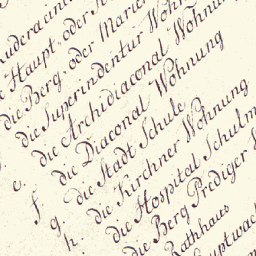 Haupt, oder
die Berg, oder Marien
die Superindentur Wohnu
die Archidiaconal Wohnun
die Diaconal Wohnung
e. die Stadt Schule
f. die Kirchner Wohnung
g. die Hospital Schulm
h. die Berg Prediger
Rathhaus